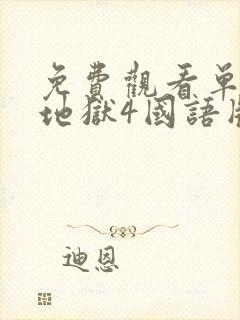 免費觀看單
地獄4國語
迪恩